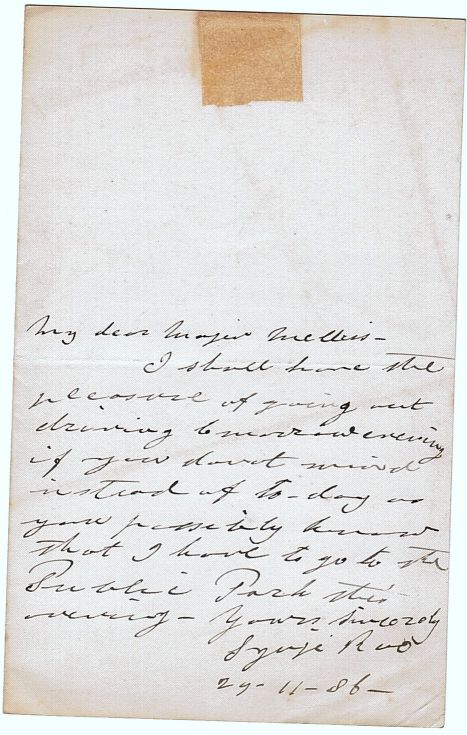 My dear Major Mellis -
I shall have the
pleasure of going out
driving tomorrow evening
if you don't mind
instead of to-day as
you possibly know
that I have to go to the
Public Park this
evening - Yours Sincerely
Syaji Rao
29-11-86-